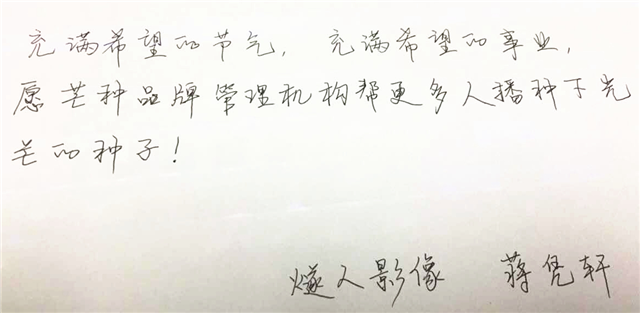 充满希望的节气，充满希望的事业，
愿芒种品牌管理机构帮更多人播种下光
芒的种子！
燧人影像 蒋凭轩